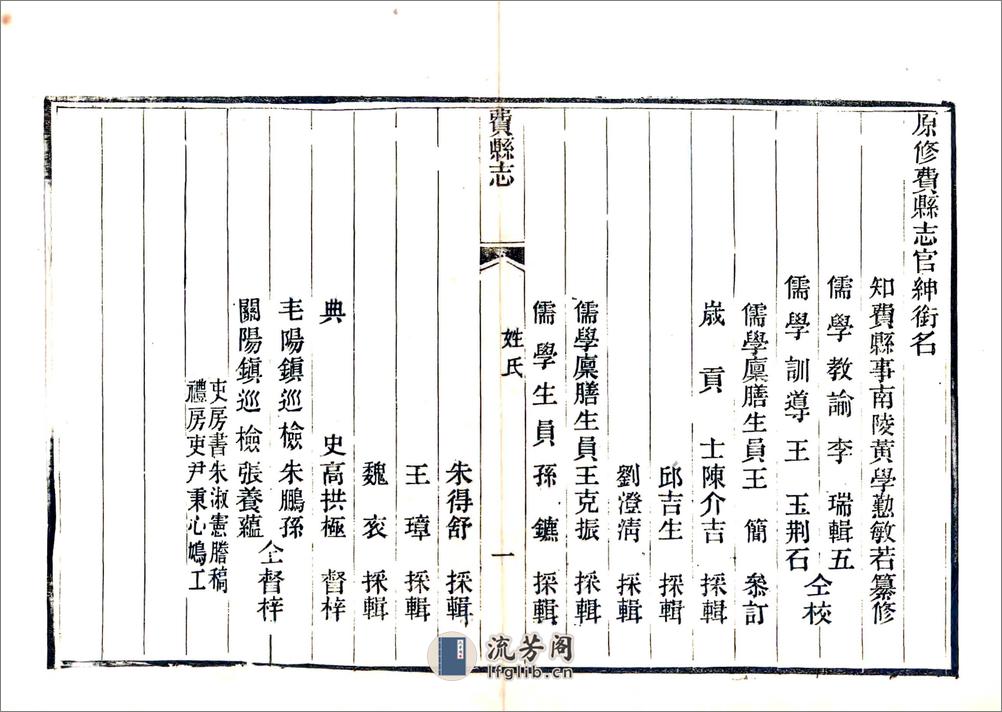 原修費縣志官紳銜名
知費縣事南陵黃學懃敏若纂修
儒學教諭李瑞輯五
儒學訓導王玉荆石
仝校
儒學廩膳生員王簡叅訂
歲貢士陳介吉採輯
邱吉生採輯
劉澄淸採輯
儒學廩膳生員王克振採輯
儒學生員孫鑣採輯
費縣志
姓氏
一
朱得舒採輯
王璋採輯
魏衮採輯
典史高拱極督梓
毛陽鎮巡檢朱鵬孫
關陽鎮巡檢張養蘊
仝督梓
吏房書朱淑憲謄稿
禮房吏尹秉心鳩工
流芳阁
lfglib.cn